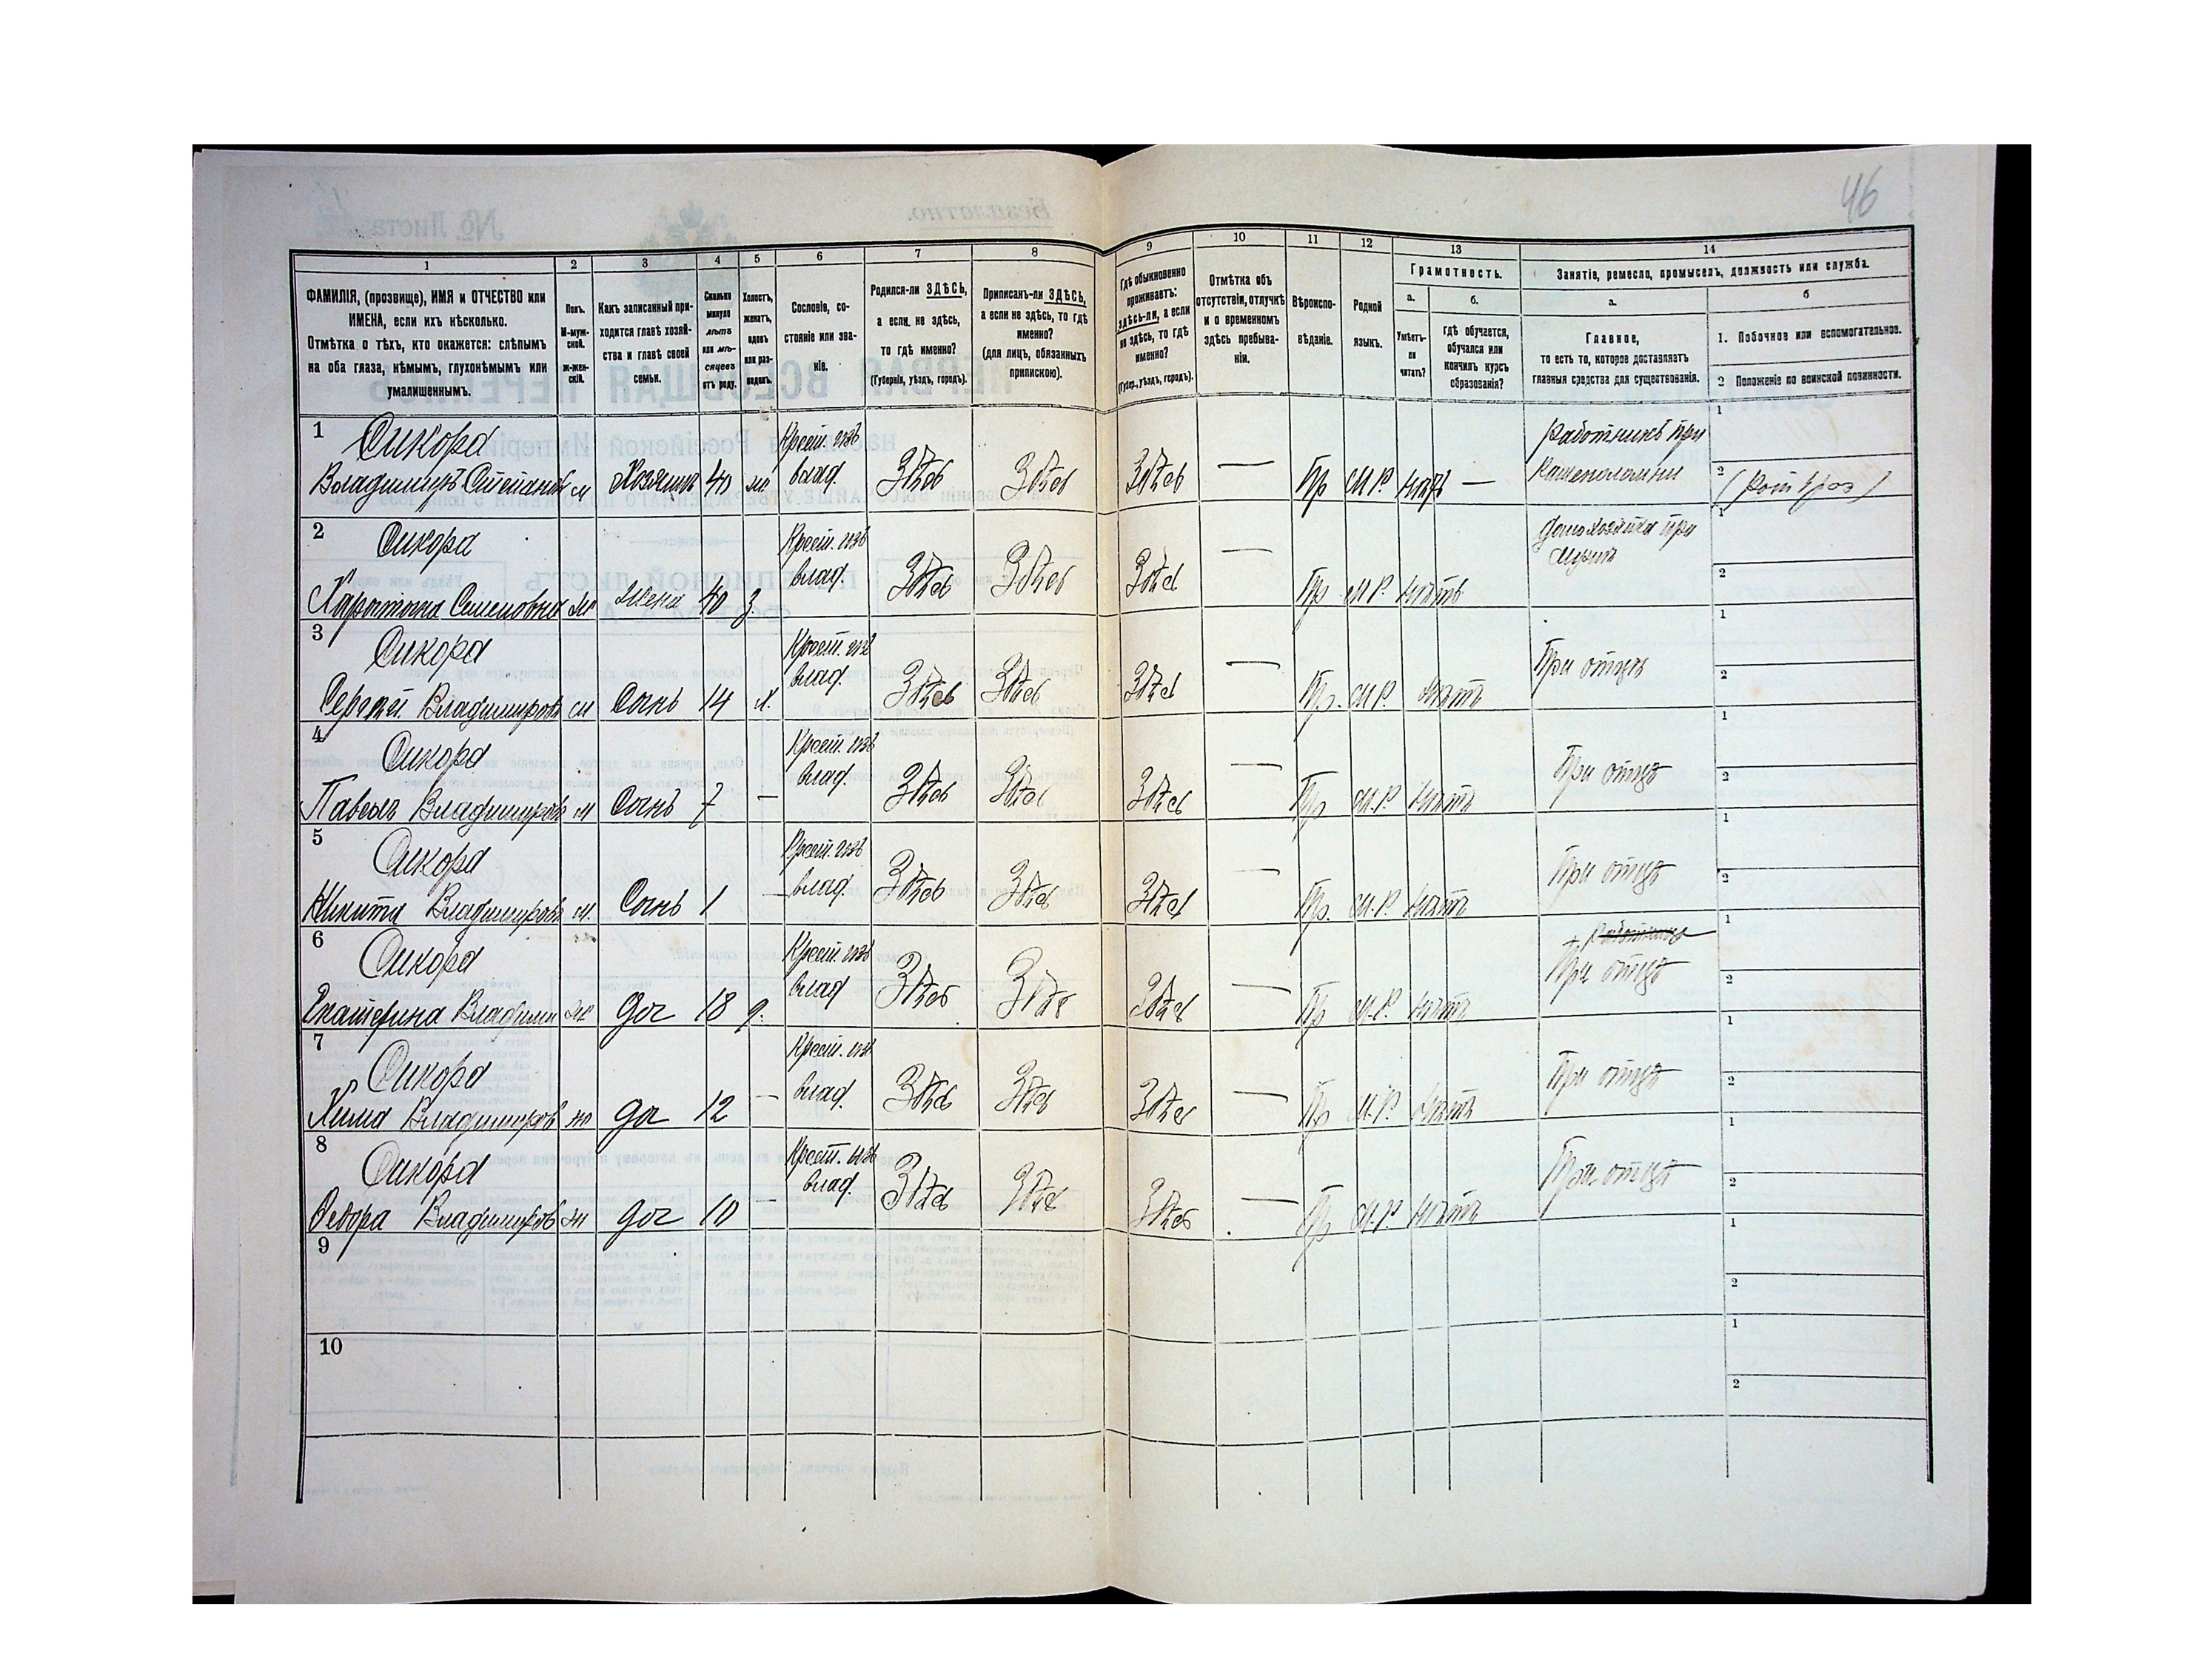 46
1 2 3 4 5 6 7 8 9 10 11 12 13 14
ФАМИЛІЯ, (прозвище), ИМЯ и ОТЧЕСТВО или
ИМЕНА, если ихъ нѣсколько.
Отмѣтка о тѣхъ, кто окажется: слѣпымъ
на оба глаза, нѣмымъ, глухонѣмымъ или
умалишеннымъ.
Полъ.
М-муж-
ской.
Ж-жен-
скій.
Какъ записанный при-
ходится главѣ хозяй-
ства и главѣ своей
семьи.
Сколько
минуло
лѣтъ
или мѣ-
сяцевъ
отъ роду.
Холостъ,
женатъ,
вдовъ
или раз-
веденъ.
Сословіе, со-
стояніе или зва-
ніе.
Родился-ли ЗДѢСЬ,
а если не здѣсь,
то гдѣ именно?
(Губернія, уѣздъ, городъ).
Приписанъ-ли ЗДѢСЬ,
а если не здѣсь, то гдѣ
именно?
(для лицъ, обязанныхъ
припискою).
Гдѣ обыкновенно
проживаетъ:
здѣсь-ли, а если
не здѣсь, то гдѣ
именно?
(Губер., уѣздъ, городъ).
Отмѣтка объ
отсутствіи, отлучкѣ
и о временномъ
здѣсь пребыва-
ніи.
Вѣроиспо-
вѣданіе.
Родной
языкъ.
Грамотность.
а.
Умѣетъ-
ли
читать?
б.
гдѣ обучается,
обучался или
кончилъ курсъ
образованія?
Занятіе, ремесло, промыселъ, должность или служба.
а.
Главное,
то есть то, которое доставляетъ
главныя средства для существованія.
б
1. Побочное или вспомогательное.
2 Положеніе по воинской повинности.
1 Сикора Крест. изъ Работникъ при 1
Владимиръ Степановъ м Хозяинъ 40 ж влад. Здѣсь Здѣсь Здѣсь — Пр М.Р. нѣтъ — каменоломни 2
2 Сикора Крест. изъ Домохозяйка при 1
Харитина Семеновна ж жена 40 з. влад. Здѣсь Здѣсь Здѣсь — Пр М.Р. нѣтъ мужѣ 2
3 Сикора Крест. изъ 1
Сергѣй Владимировъ м Сынъ 14 х. влад. Здѣсь Здѣсь Здѣсь — Пр. М.Р. нѣтъ При отцѣ 2
4 Сикора Крест. изъ 1
Павелъ Владимировъ м Сынъ 7 — влад. Здѣсь Здѣсь Здѣсь — Пр М.Р. нѣтъ При отцѣ 2
5 Сикора Крест. изъ 1
Никита Владимировъ м. Сынъ 1 — влад. Здѣсь Здѣсь Здѣсь — Пр. М.Р. нѣтъ При отцѣ 2
6 Сикора Крест. изъ 1
Екатерина Владими ж доч 18 д. влад Здѣсь Здѣсь Здѣсь — Пр М.Р. нѣтъ При отцѣ 2
7 Сикора Крест. изъ 1
Хима Владимиров ж доч 12 — влад. Здѣсь Здѣсь Здѣсь — Пр М.Р. нѣтъ При отцѣ 2
8 Сикора Крест. изъ 1
Федора Владимиров ж доч 10 — влад. Здѣсь Здѣсь Здѣсь — Пр М.Р. нѣтъ При отцѣ 2
9 1
2
10 1
2